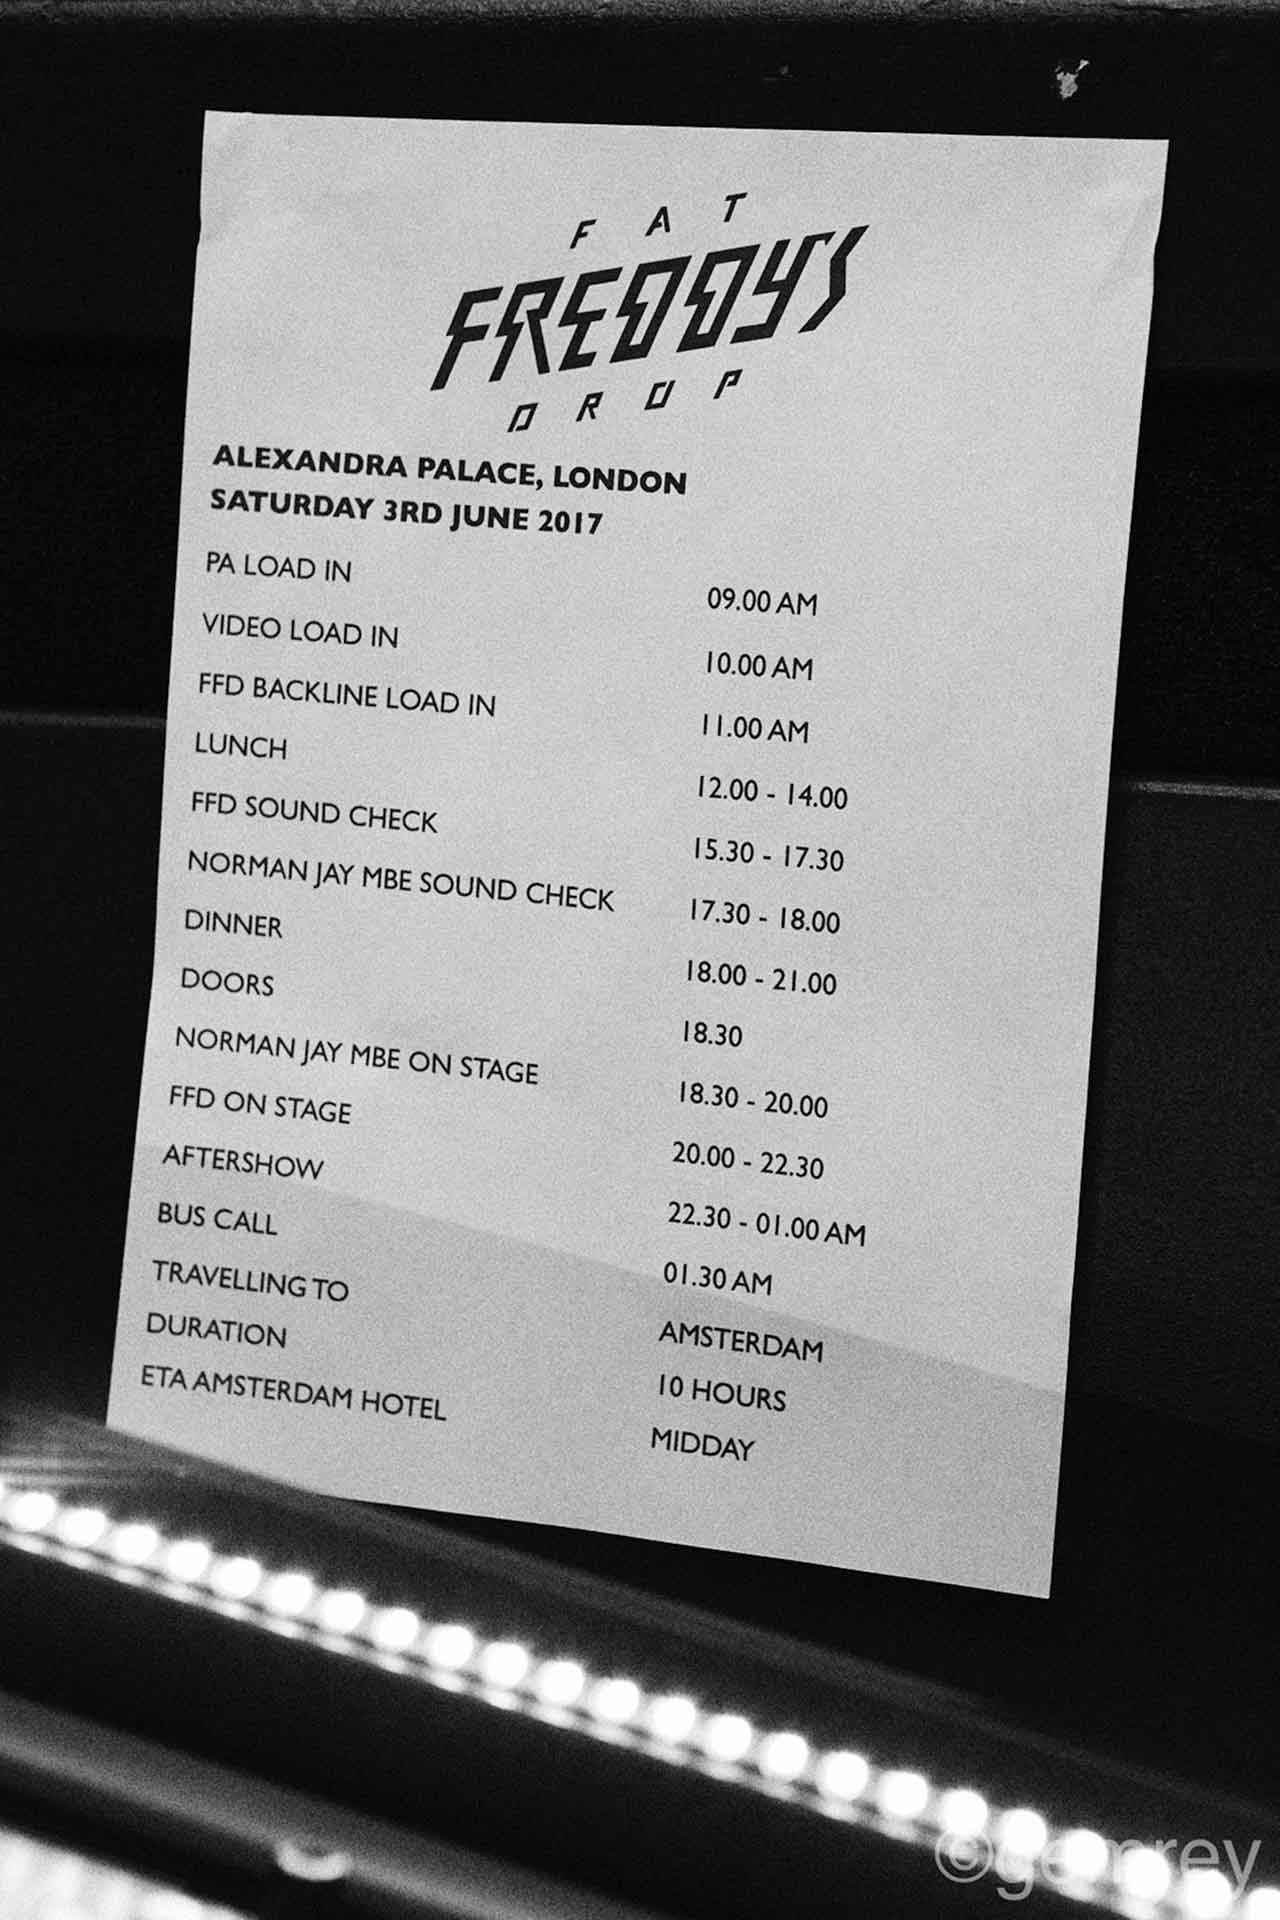 FAT
FREDDY'S
DROP
ALEXANDRA PALACE, LONDON
SATURDAY 3RD JUNE 2017
PA LOAD IN 09.00 AM
VIDEO LOAD IN 10.00 AM
FFD BACKLINE LOAD IN 11.00 AM
LUNCH 12.00 - 14.00
FFD SOUND CHECK 15.30 - 17.30
NORMAN JAY MBE SOUND CHECK 17.30 - 18.00
DINNER 18.00 - 21.00
DOORS 18.30
NORMAN JAY MBE ON STAGE 18.30 - 20.00
FFD ON STAGE 20.00 - 22.30
AFTERSHOW 22.30 - 01.00 AM
BUS CALL 01.30 AM
TRAVELLING TO AMSTERDAM
DURATION 10 HOURS
ETA AMSTERDAM HOTEL MIDDAY
©gemrey